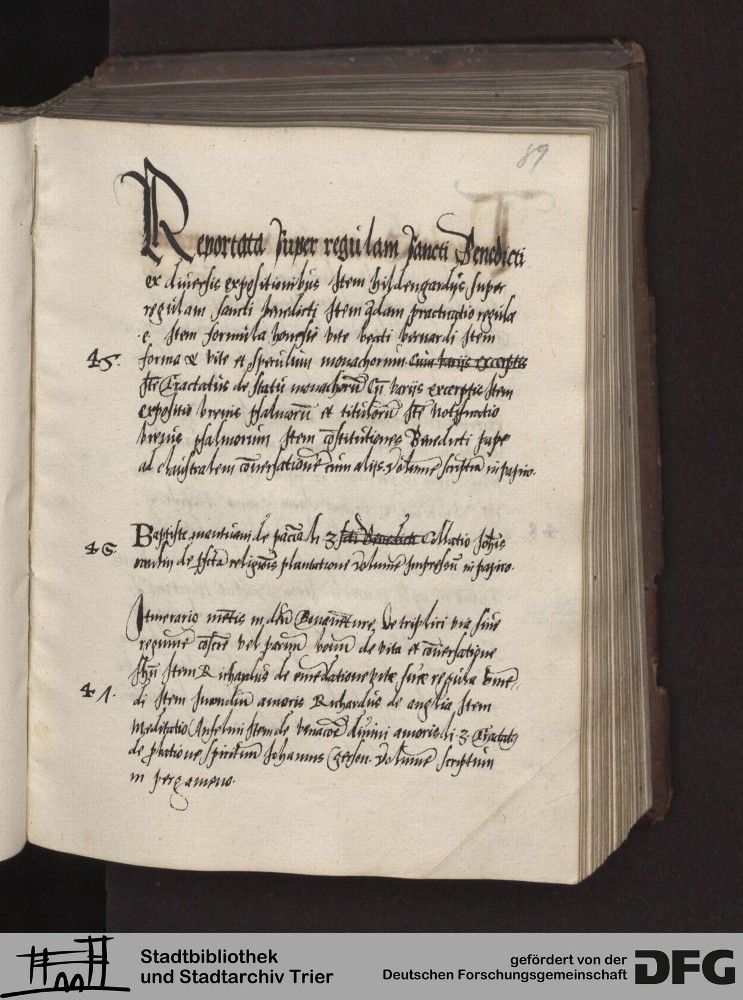 89
Reportata super regulam sancti Benedicti
ex diuersis expositionibus Item hildengardis super
regulam sancti benedicti Item q̄dam practicatio regulę
.e. Item formula honestę vitę beati bernardi Item
45. forma & vitę et speculum monachorum cum varijs excerptis
Itē Tractatus de statu monachorū cū varijs excerptis Item
expositio breuis psalmorū et titulorū Itē
breuis psalmorum Item cōstitutiones Benedicti papę
ad claustralem cōuersationē cum alijs. Volumē scriptū in papiro.
46. Baptistę mantuani de paciā li 3 sctī Benedicti Collatio Johīs
de religiōis plantatione volumē impressū in papiro.
Itinerariū mētis in deū Bonauēturę, De triplici via siue
regimē cōsciē vel paruū bonū de vita et cōuersatiōe
Ihū Item Richardus de emēdatione vitę siue regula viuē
47. di Item Incendiū amoris Richardus de anglia Item
Meditatio Anselmi Item de diuini amoris li 3 Tractatus
de ꝓbatione spirituū Johannis Gerson. Volumē scriptum
in pergameno.
Stadtbibliothek
und Stadtarchiv Trier
gefördert von der
Deutschen Forschungsgemeinschaft
DFG